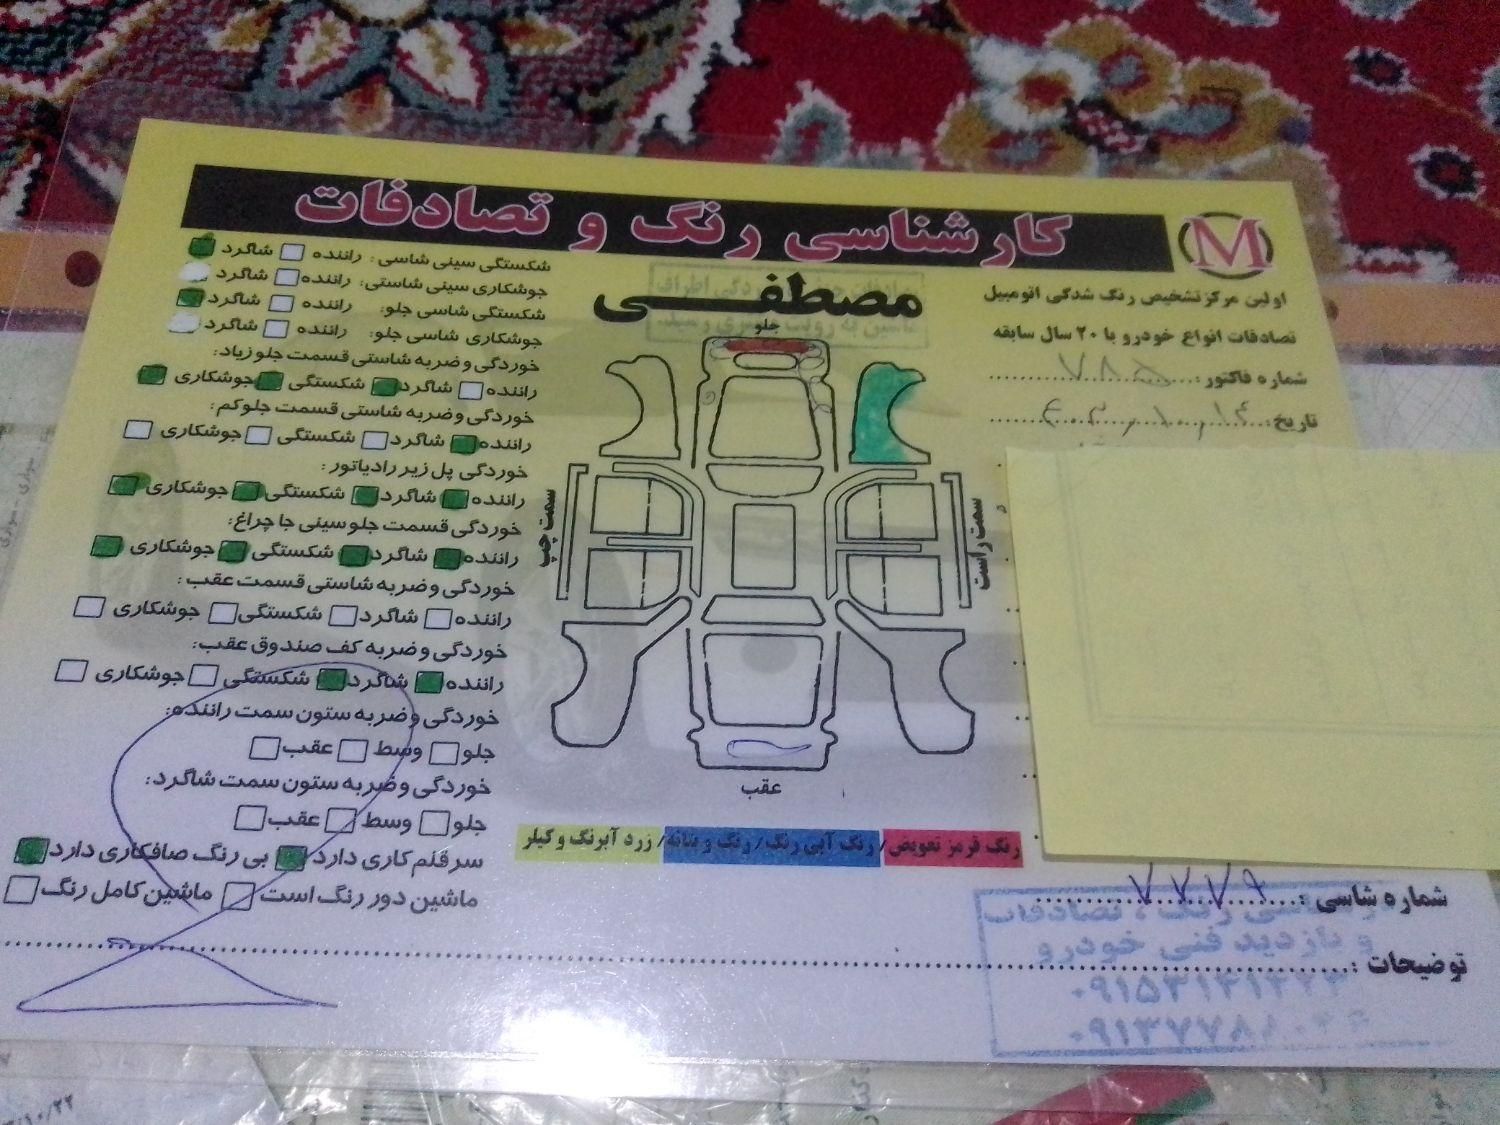 کارشناسی رنگ و تصادفات
M
مصطفی
اولین مرکز تشخیص رنگ شدگی اتومبیل
تصادفات انواع خودرو با ۲۰ سال سابقه
شماره فاکتور:
تاریخ:
شکستگی سینی شاسی: راننده شاگرد
جوشکاری سینی شاستی: راننده شاگرد
شکستگی شاسی جلو: راننده شاگرد
جوشکاری شاسی جلو: راننده شاگرد
خوردگی و ضربه شاستی قسمت جلو زیاد:
راننده شاگرد شکستگی جوشکاری
خوردگی و ضربه شاستی قسمت جلو کم:
راننده شاگرد شکستگی جوشکاری
خوردگی پل زیر رادیاتور:
راننده شاگرد شکستگی جوشکاری
خوردگی قسمت جلو سینی جا چراغ:
راننده شاگرد شکستگی جوشکاری
خوردگی و ضربه شاستی قسمت عقب:
راننده شاگرد شکستگی جوشکاری
خوردگی و ضربه کف صندوق عقب:
راننده شاگرد شکستگی جوشکاری
خوردگی و ضربه ستون سمت راننده:
جلو وسط عقب
خوردگی و ضربه ستون سمت شاگرد:
جلو وسط عقب
سر قلم کاری دارد بی رنگ صافکاری دارد
ماشین دور رنگ است ماشین کامل رنگ
جلو
سمت چپ
سمت راست
عقب
رنگ قرمز تعویض/ رنگ آبی رنگ/ رنگ و بتانه/ زرد آبرنگ و کیلر
شماره شاسی:
توضیحات:
و بازدید فنی خودرو